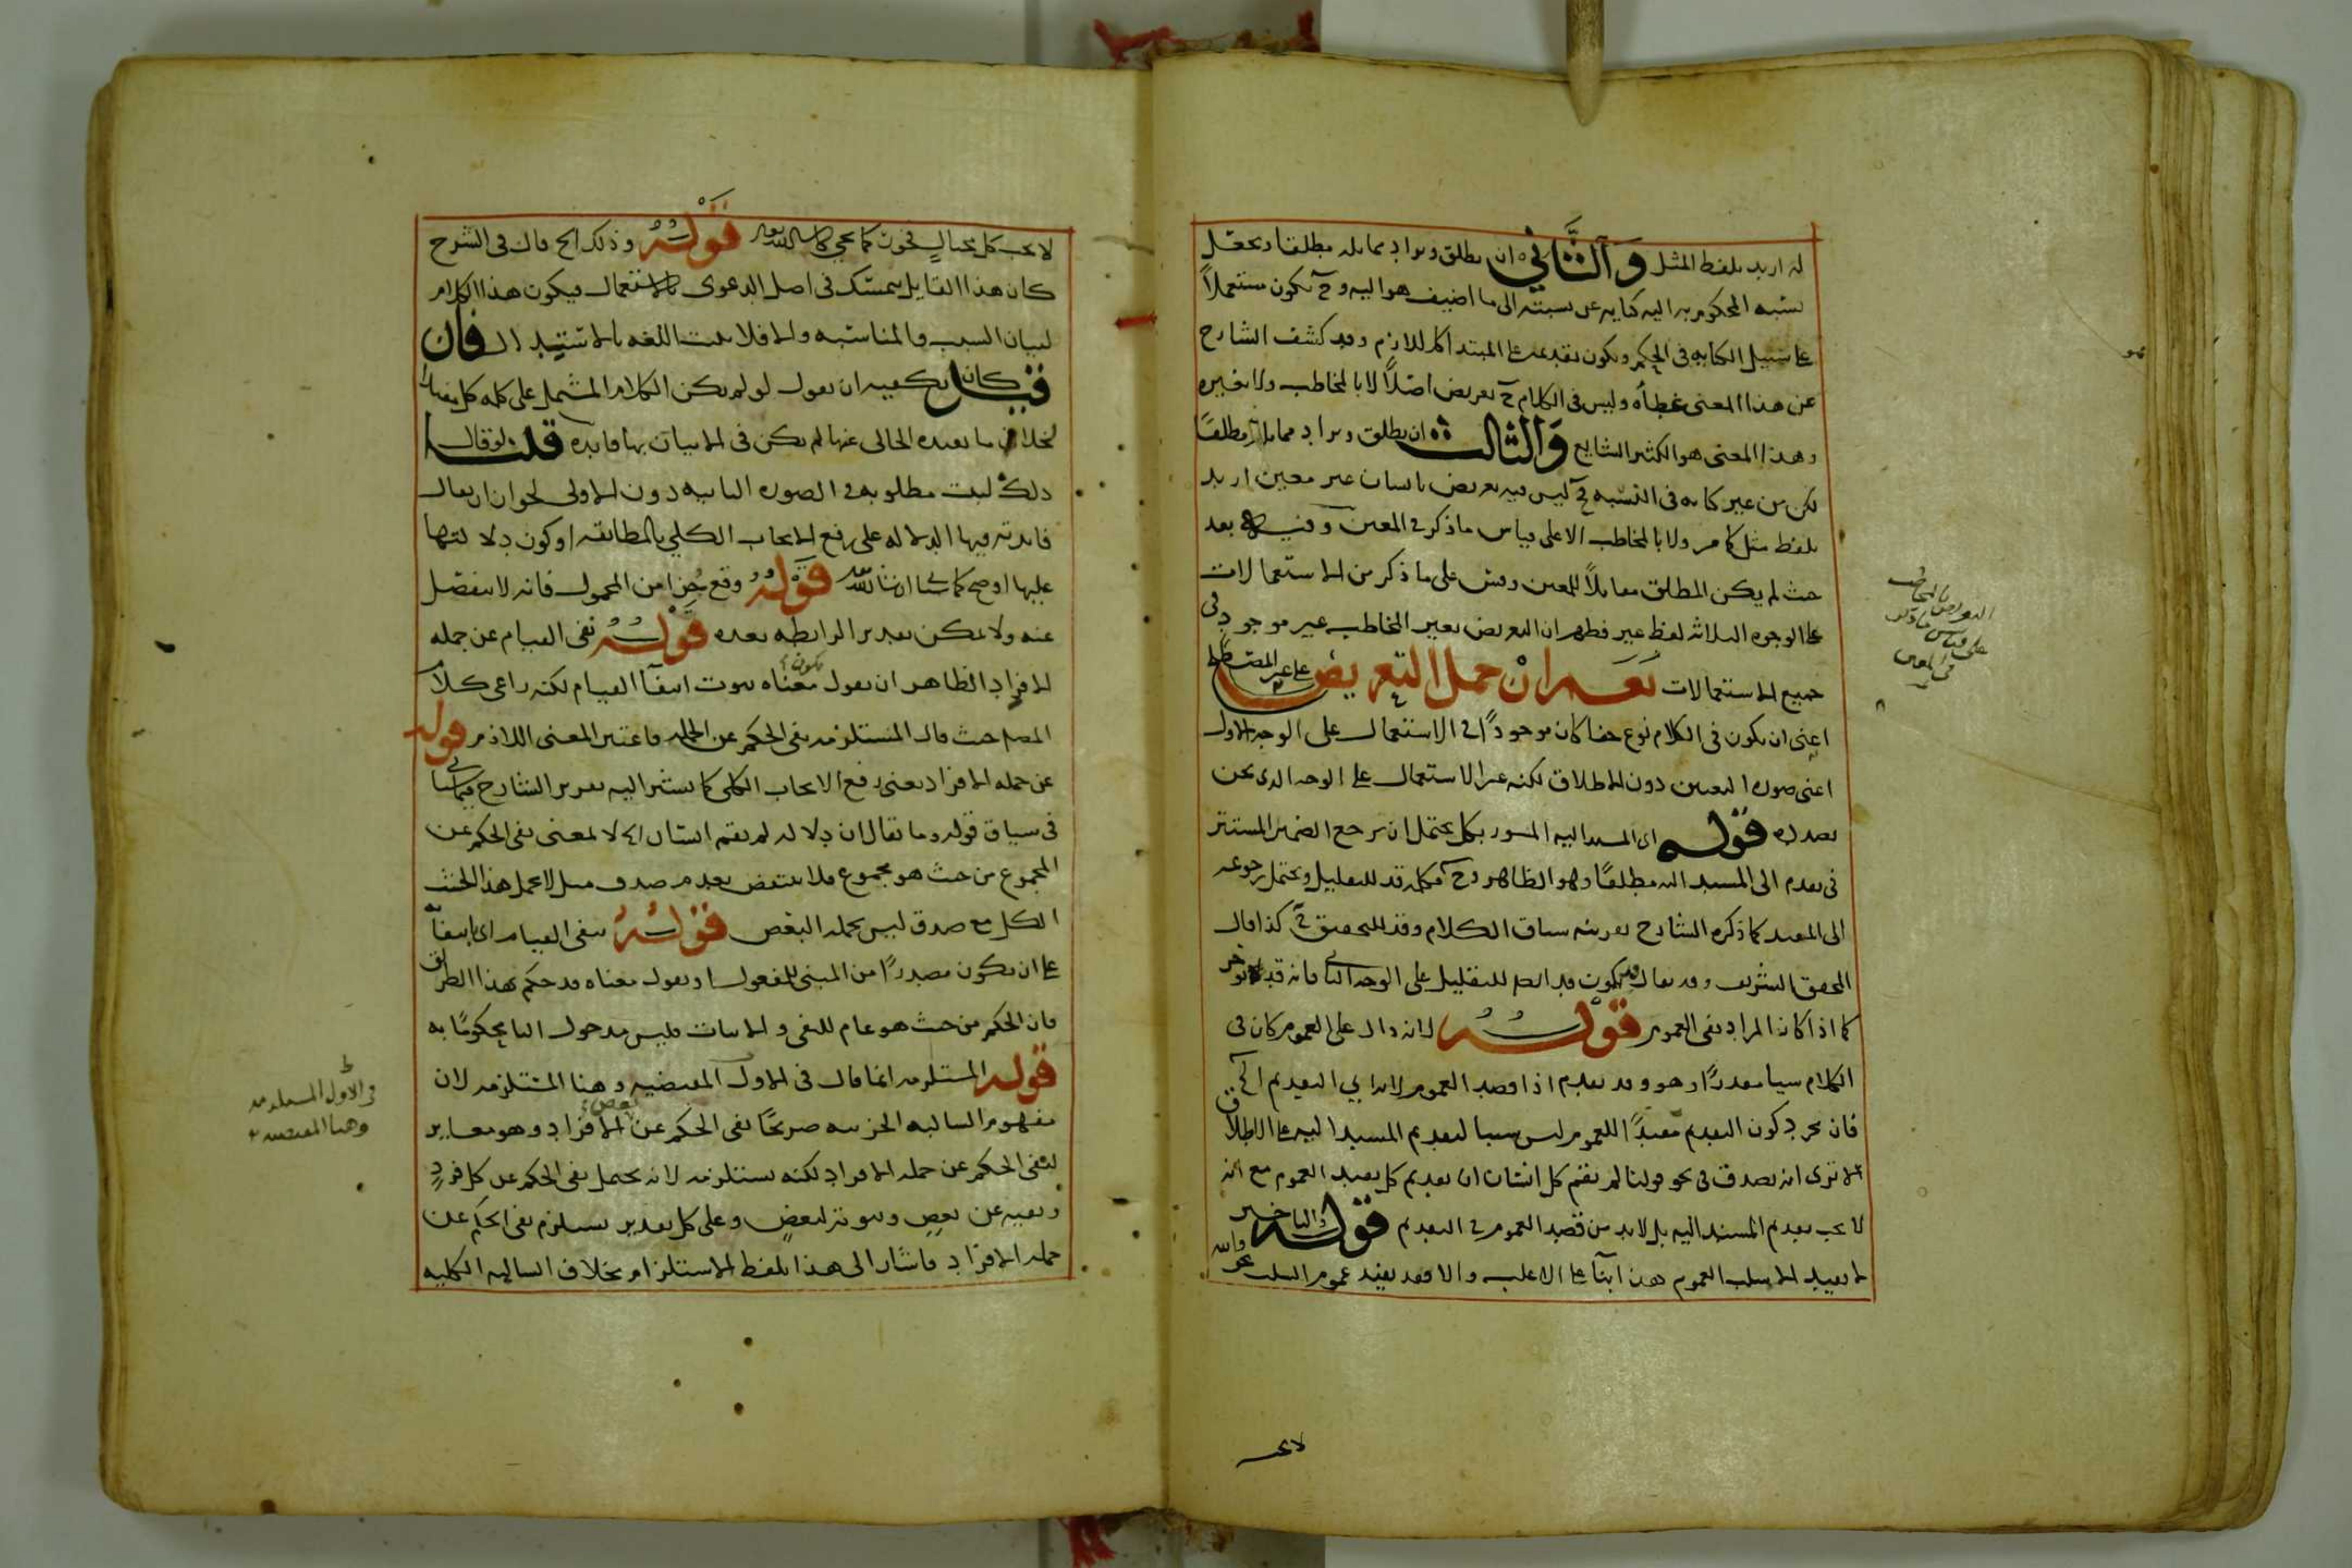 له اريد بلفظ المثل والثاني ان يطلق ويراد مماثله مطلقا ويجعل
نسبة المحكوم به اليه كناية عن نسبته الى ما اضيف هو اليه وح يكون مستعملاً
على سبيل الكناية في الحكم ويكون تقديمه على المبتدا كاللازم وقد كشف الشارح
عن هذا المعنى غطأه وليس في الكلام ح تعريض اصلاً لا بالمخاطب ولا بغيره
وهذا المعنى هو الكثير الشايع والثالث ان يطلق ويراد مماثله مطلقا
لكن من غير كناية في النسبة ح ليس فيه تعريض بانسان غير معين اريد
بلفظ مثل كما مر ولا بالمخاطب الا على قياس ما ذكر في المعين وفيه بعد
حيث لم يكن المطلق مقابلاً للمعين وقس على ما ذكر من الاستعمالات
على الوجوه الثلاثة لفظ غير فظهر ان التعريض بغير المخاطب غير موجود في
جميع الاستعمالات نعم ان حمل التعريض على غير المصطلح
اعني ان يكون في الكلام نوع خفا كان موجوداً في الاستعمال على الوجه الاول
اعني صورة التعيين دون الاطلاق لكنه غير الاستعمال على الوجه الذي نحن
بصدده قوله اي المسند اليه المسور بكل يحتمل ان يرجع الضمير المستتر
في يقدم الى المسند اليه مطلقا وهو الظاهر وح فكلمة قد للتقليل ويحتمل رجوعه
الى المقيد كما ذكره الشارح بقرينة سياق الكلام وقد للتحقيق ح كذا قال
المحقق الشريف وقد يقال يكون قد ايضا للتقليل على الوجه الثاني فانه قد يؤخر
كما اذا كان المراد نفي العموم قوله لانه دال على العموم كان في
الكلام سيا مقدرًا وهو وقد يقدم اذا قصد العموم لانه اي التقديم الخ
فان مجرد كون التقديم مفيدًا للعموم ليس سببا لتقديم المسند اليه على الاطلاق
الا ترى انه يصدق في نحو قولنا لم يقم كل انسان ان تقديم كل يفيد العموم مع انه
لا يجب تقديم المسند اليه بل لا بد من قصد العموم في التقديم قوله والتاخير
لا يفيد الا سلب العموم هذا بنآ على الاغلب والا فقد يفيد عموم السلب نحو والله
لا يحب
التعريض بالمخاطب
على قياس ما ذكر
في المعين
لا يحب كل مختال فخور كما يجي ان شا الله تعالى قوله وذلك الخ قال في الشرح
كان هذا القايل يتمسك في اصل الدعوى بالاستعمال ويكون هذا الكلام
لبيان السبب والمناسبة والا فلا يثبت اللغة بالاستدلال فان
قيل كان يكفيه ان يقول لو لم يكن الكلام المشتمل على كلمة كل مفيدا
لخلاف ما يفيده الخالي عنها لم يكن في الاتيان بها فايدة قلت لو قال
ذلك لثبت مطلوبه في الصورة الثانية دون الاولى لجواز ان يقال
فايدته فيها الدلالة على رفع الايجاب الكلي بالمطابقة او كون دلالتها
عليها اوضح كما سياتي ان شا الله تعالى قوله وقع جزا من المحمول فانه لا ينفصل
عنه ولا يمكن تقدير الرابطة بعده قوله نفي القيام عن جملة
الافراد الظاهر ان يقول يكون معناه ثبوت انتفآ القيام لكنه راعى كلام
المصنف حيث قال المستلزمة نفي الحكم عن الجملة فاعتبر المعنى اللازم قوله
عن جملة الافراد يعني رفع الايجاب الكلي كما يشير اليه تقرير الشارح فيما سياتي
في سياق قوله وما يقال ان دلالة لم يقم انسان اه لا لمعنى نفي الحكم عن
المجموع من حيث هو مجموع فلا ينتقض بعدم صدق مثل لا يحمل هذا الخشب
الكل مع صدق ليس يحمله البعض قوله بنفي القيام اي بانتفآ
على ان يكون مصدرًا من المبني للمفعول او يقول معناه قد حكم بهذا الطرف
فان الحكم من حيث هو عام للنفي والاثبات فليس مدخول البا محكومًا به
قوله المستلزمة انما قال في الاول المقتضية وهنا المستلزمة لان
مفهوم السالبة الجزئية صريحًا نفي الحكم عن بعض الافراد وهو مغاير
لنفي الحكم عن جملة الافراد لكنه يستلزمه لانه يحتمل نفي الحكم عن كل فرد
ونفيه عن بعض وثبوته لبعض وعلى كل تقدير يستلزم نفي الحكم عن
جملة الافراد فاشار الى هذا بلفظ الاستلزام بخلاف السالبة الكلية
في الاول المستلزمة
وهنا المقتضية